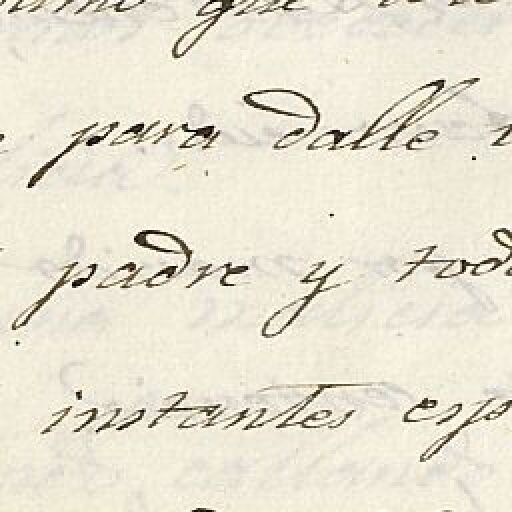 que
para dalle
padre y tod
instantes esp